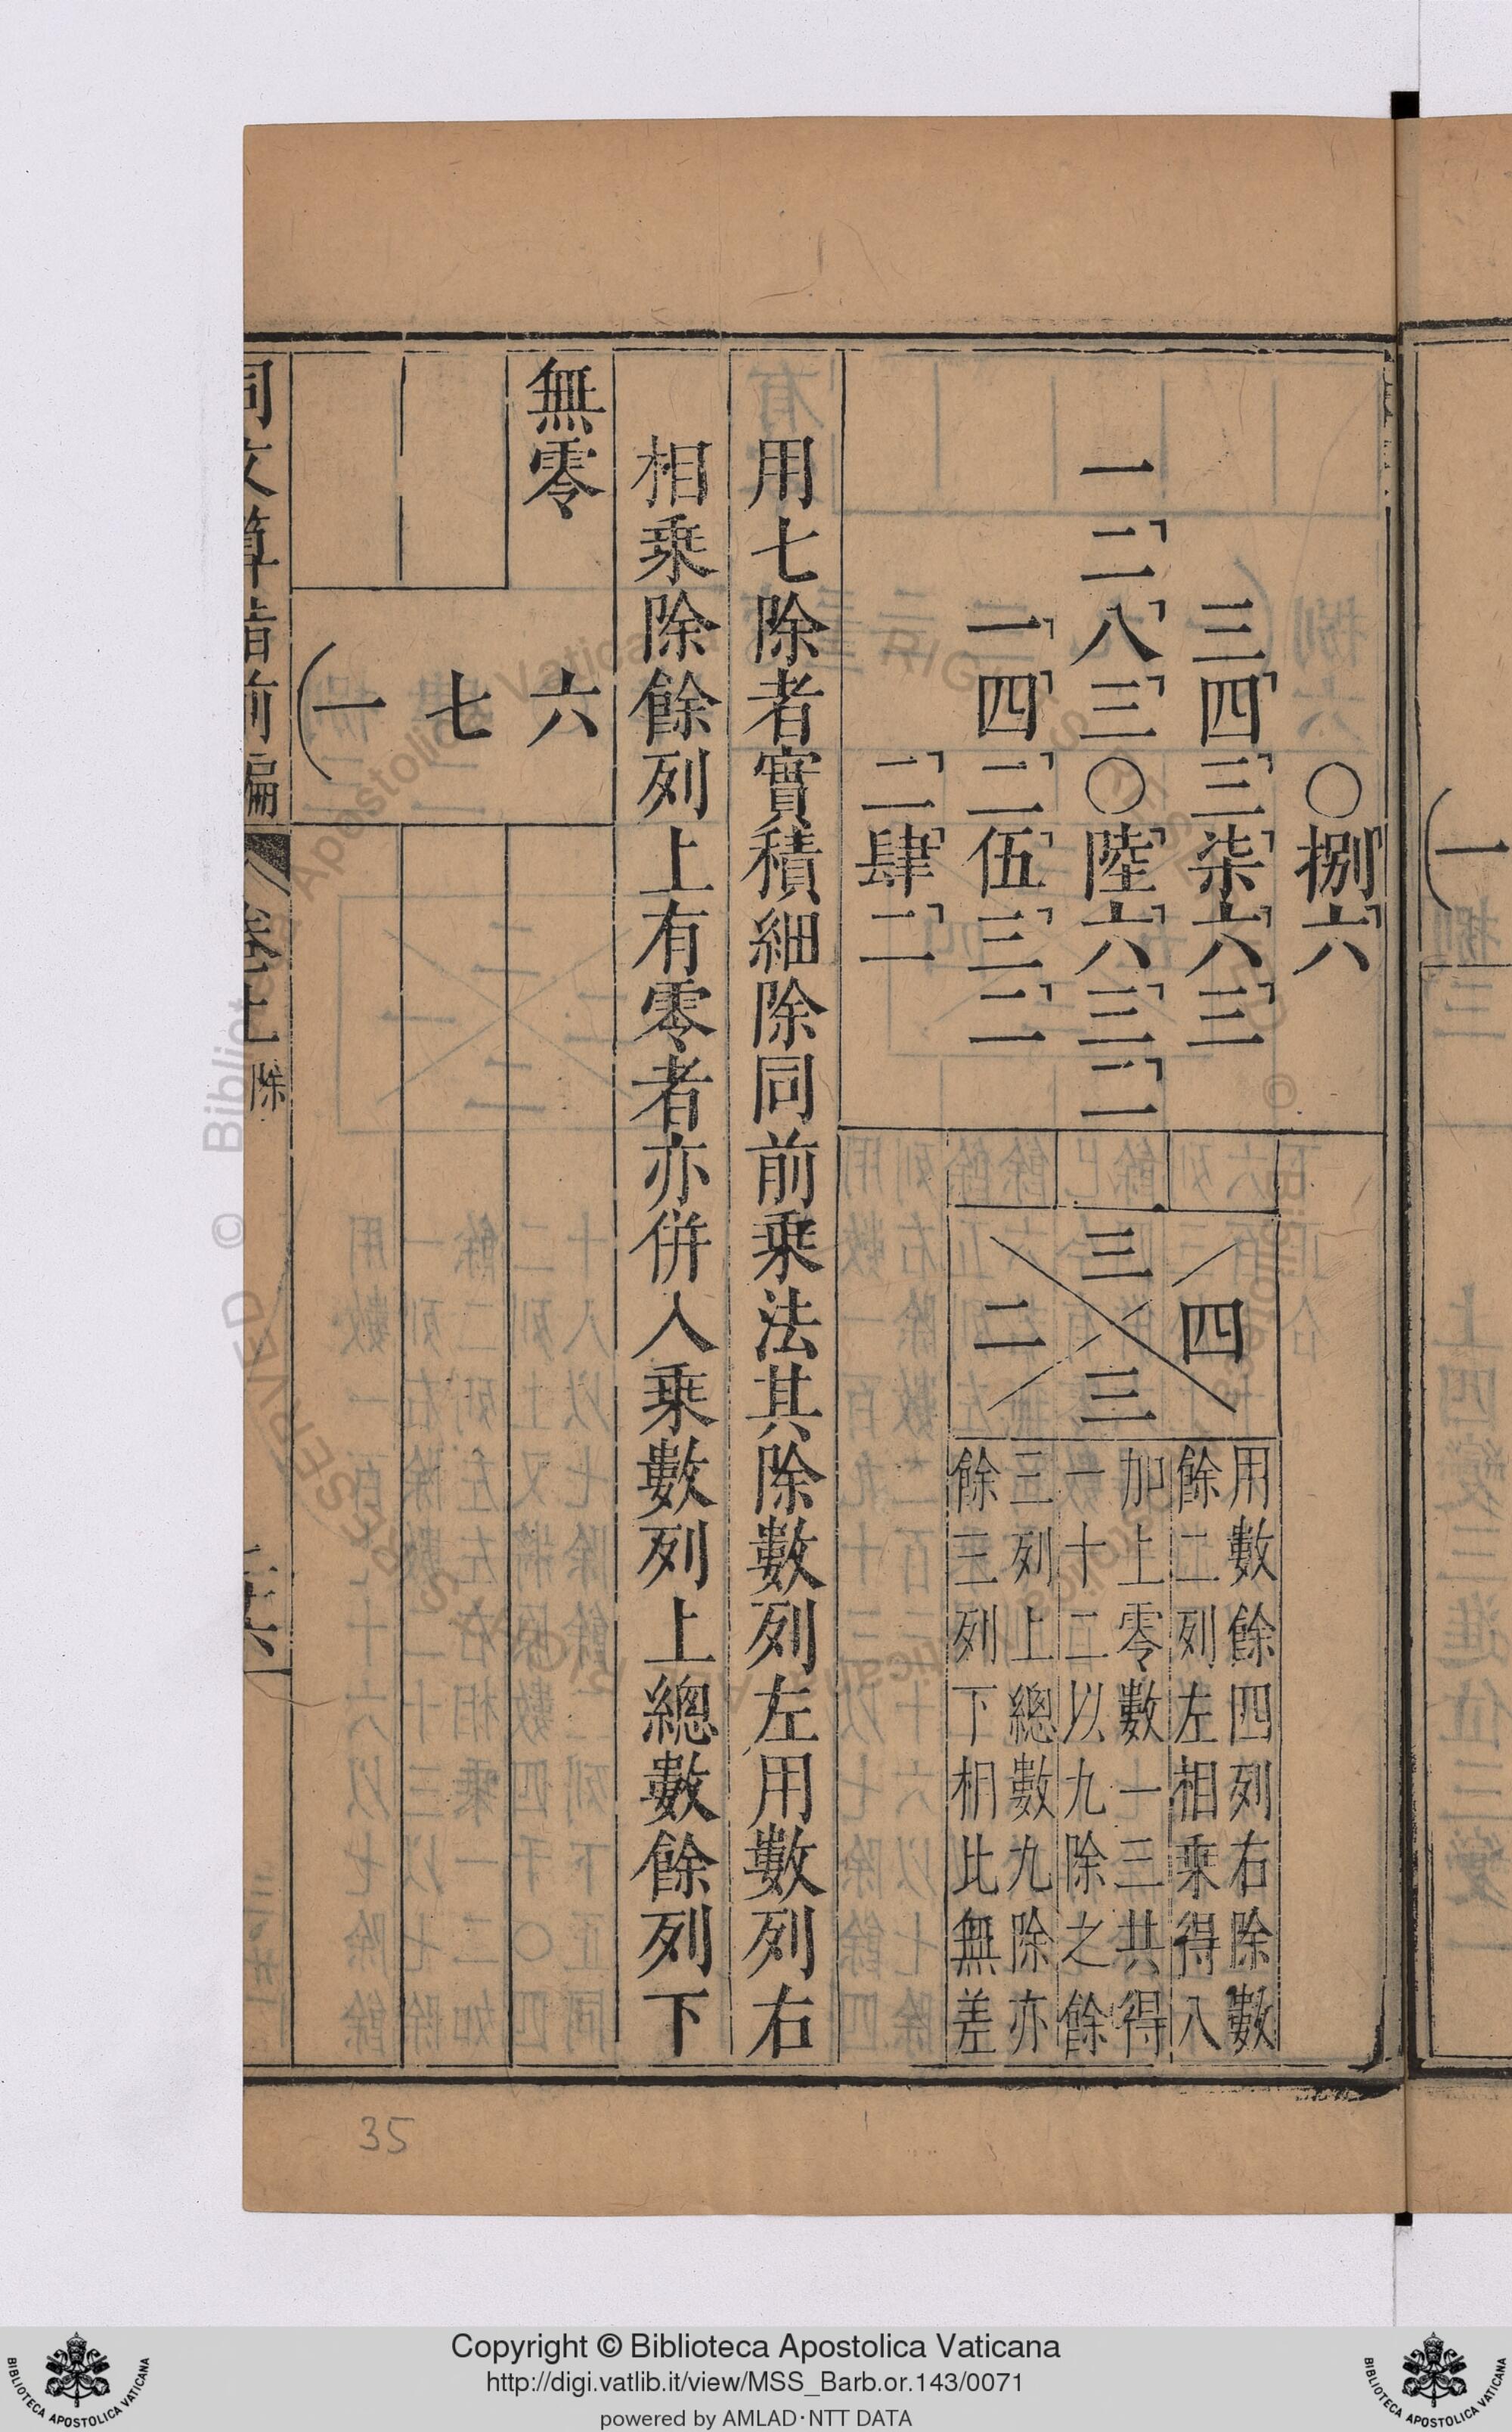 ○捌六
三四三柒六三
一二八三○陸六三二
一四二伍三二
二肆二
三
四
二
三
用數餘四列右除數
餘二列左相乘得八
加上零數一三共得
一十二以九除之餘
三列上總數九除亦
餘三列下相此無差
用七除者實積細除同前乘法其除數列左用數列右
相乘除餘列上有零者亦併入乘數列上總數餘列下
無零
六
七
一
同文算指前編
除
一
35
Copyright © Biblioteca Apostolica Vaticana
http://digi.vatlib.it/view/MSS_Barb.or.143/0071
powered by AMLAD·NTT DATA
BIBLIOTECA APOSTOLICA VATICANA
BIBLIOTECA APOSTOLICA VATICANA